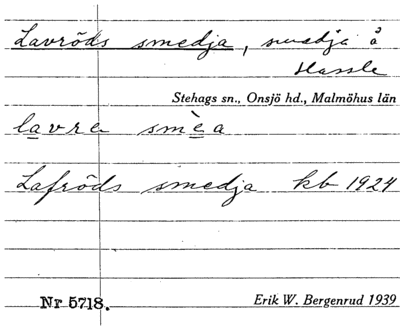 Lavröds smedja, smedja å
Hassle
Stehags sn., Onsjö hd., Malmöhus län
lavre smèa
Lafröds smedja kb 1924
Nr 5718. Erik W. Bergenrud 1939